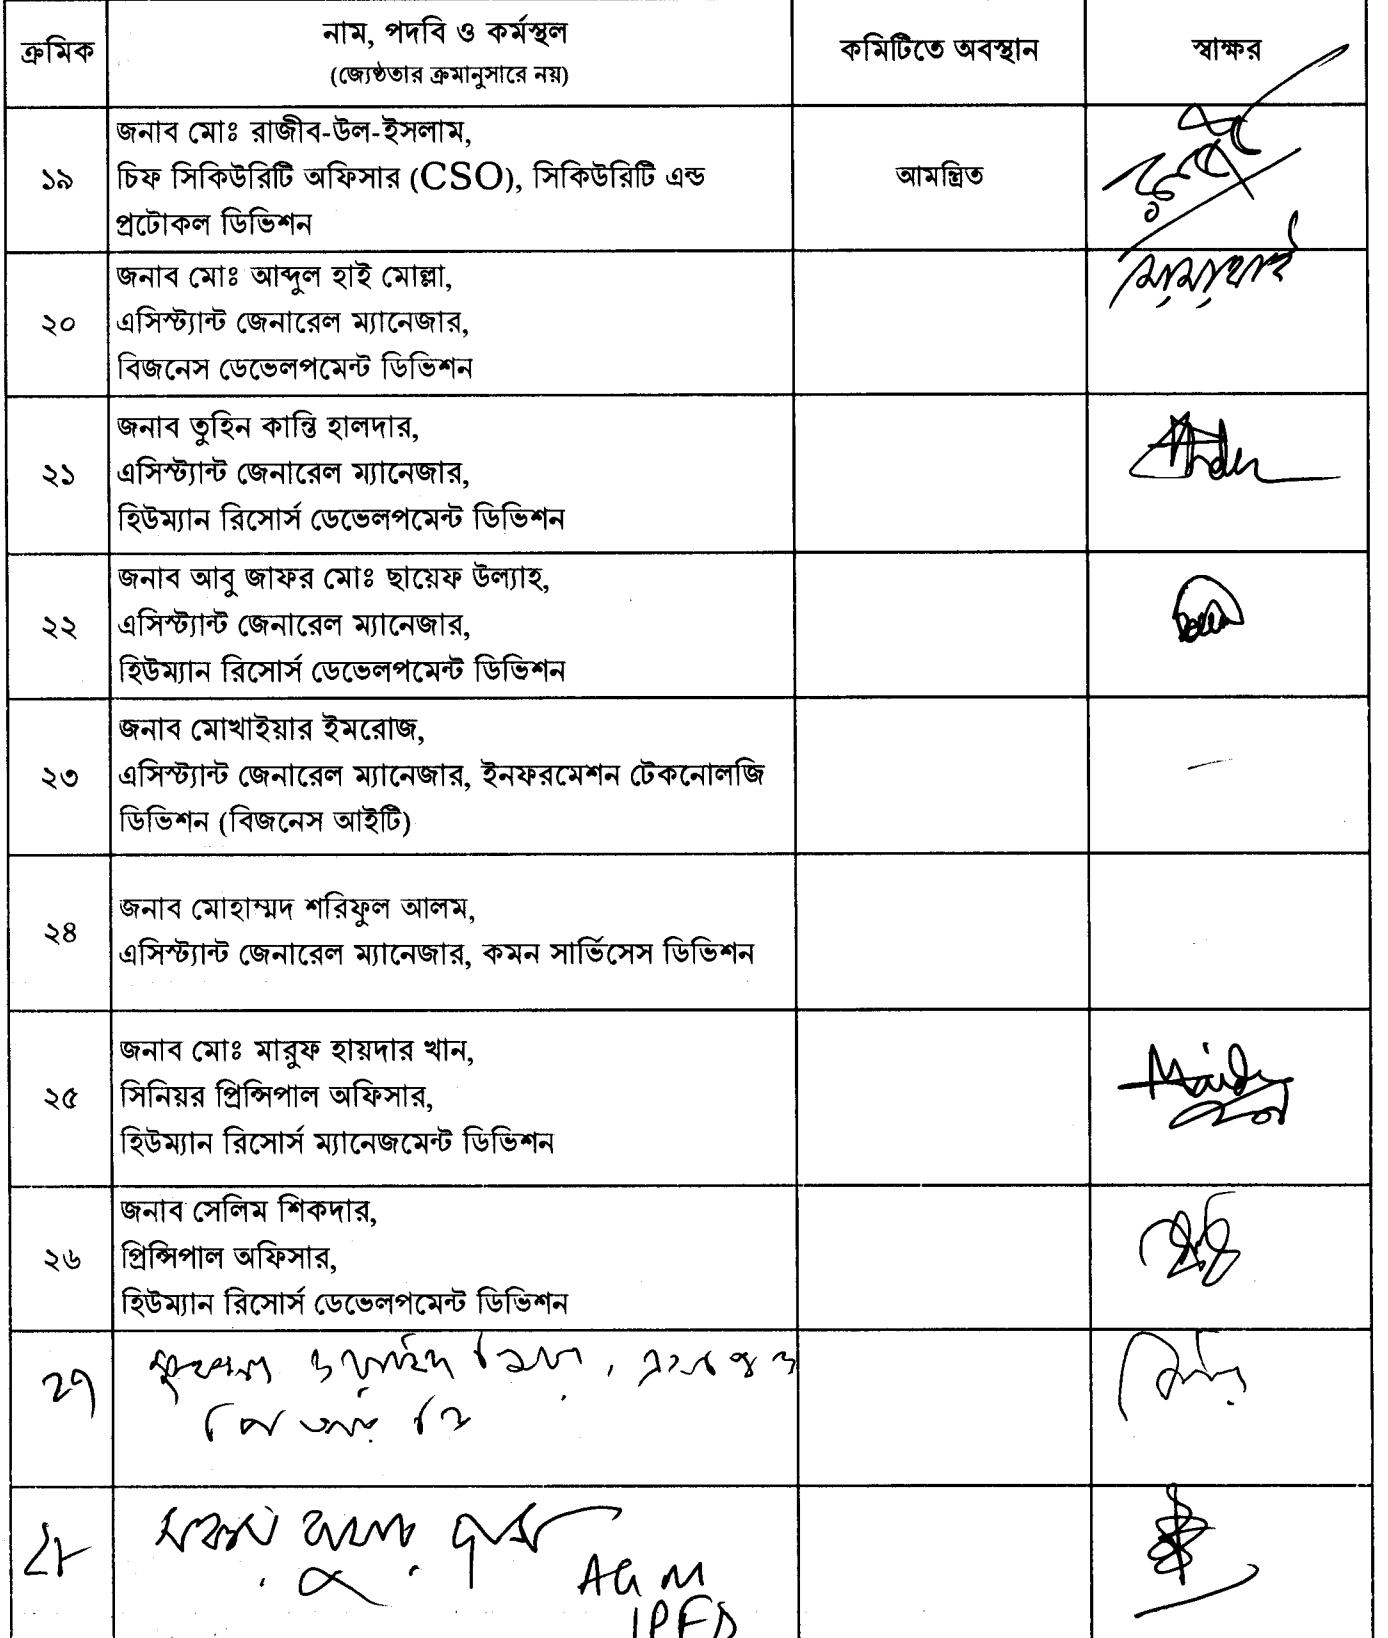 ক্রমিক
নাম, পদবি ও কর্মস্থল
(জ্যেষ্ঠতার ক্রমানুসারে নয়)
কমিটিতে অবস্থান
স্বাক্ষর
১৯
জনাব মোঃ রাজীব-উল-ইসলাম,
চিফ সিকিউরিটি অফিসার (CSO), সিকিউরিটি এন্ড
প্রটোকল ডিভিশন
আমন্ত্রিত
২০
জনাব মোঃ আব্দুল হাই মোল্লা,
এসিস্ট্যান্ট জেনারেল ম্যানেজার,
বিজনেস ডেভেলপমেন্ট ডিভিশন
২১
জনাব তুহিন কান্তি হালদার,
এসিস্ট্যান্ট জেনারেল ম্যানেজার,
হিউম্যান রিসোর্স ডেভেলপমেন্ট ডিভিশন
২২
জনাব আবু জাফর মোঃ ছায়েফ উল্যাহ,
এসিস্ট্যান্ট জেনারেল ম্যানেজার,
হিউম্যান রিসোর্স ডেভেলপমেন্ট ডিভিশন
২৩
জনাব মোখাইয়ার ইমরোজ,
এসিস্ট্যান্ট জেনারেল ম্যানেজার, ইনফরমেশন টেকনোলজি
ডিভিশন (বিজনেস আইটি)
২৪
জনাব মোহাম্মদ শরিফুল আলম,
এসিস্ট্যান্ট জেনারেল ম্যানেজার, কমন সার্ভিসেস ডিভিশন
২৫
জনাব মোঃ মারুফ হায়দার খান,
সিনিয়র প্রিন্সিপাল অফিসার,
হিউম্যান রিসোর্স ম্যানেজমেন্ট ডিভিশন
২৬
জনাব সেলিম শিকদার,
প্রিন্সিপাল অফিসার,
হিউম্যান রিসোর্স ডেভেলপমেন্ট ডিভিশন
২৭
২৮
AGM
IPFD